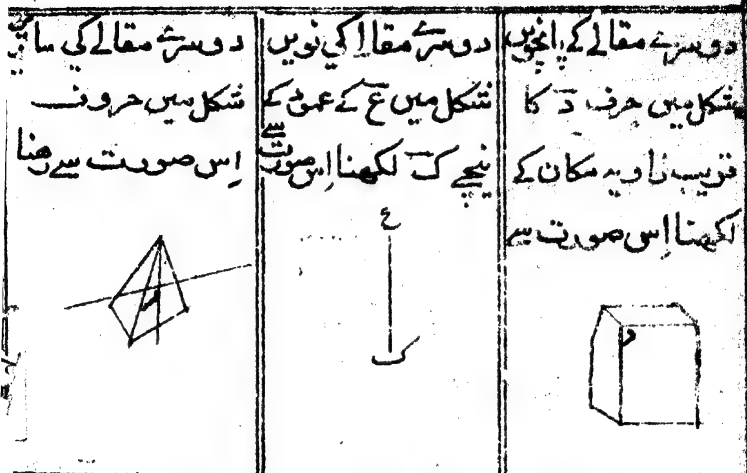 دوسرے مقالے کے پانچویں
شکل میں حرف د کا
قریب زاویہ مکان کے
لکھنا اِس صورت سے
د
دوسرے مقالا کی نویں
شکل میں ع کے عمود کے
نیچے ک لکھنا اِس صورت سے
ع
ک
دوسرے مقالے کی ساتویں
شکل میں حروف
اِس صورت سے رهنا